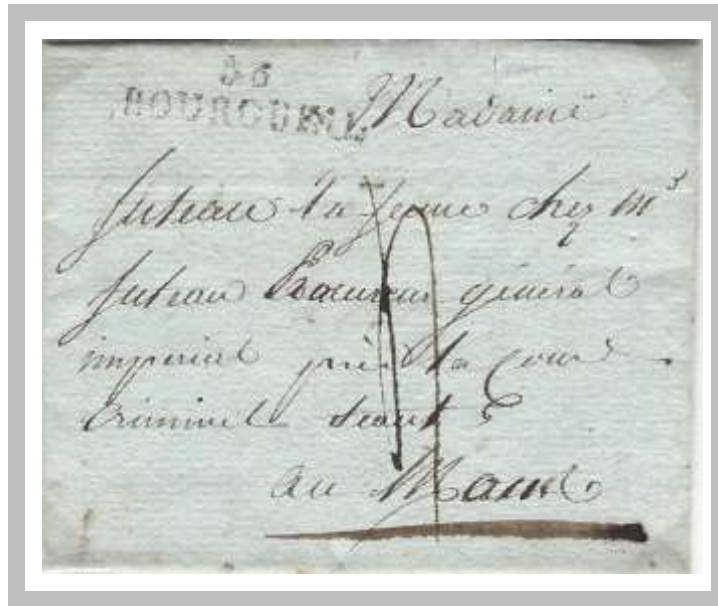 36
BOURGUEIL
Madame
Juteau la jeune chez Mr
Juteau Procureur général
imperial près la Cour
Criminel séant
au Mans